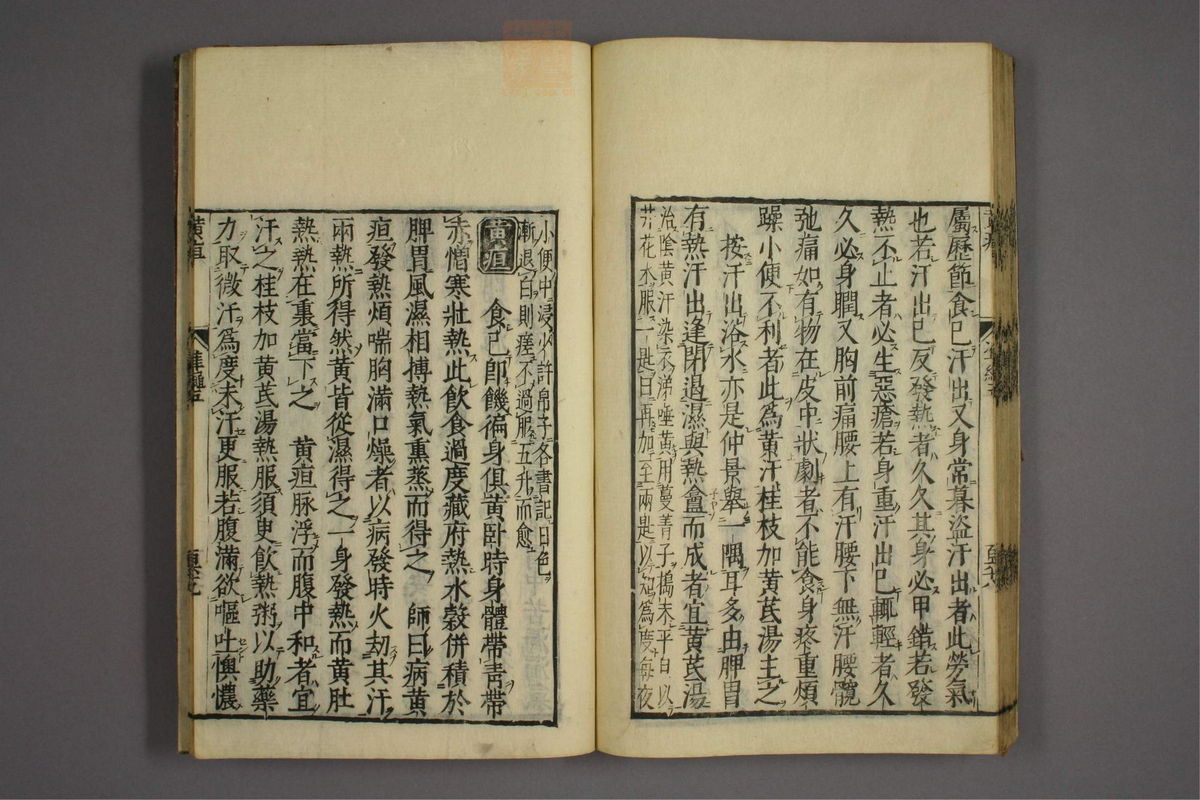 屬歷節食已汗出又身常暮盜汗出者此勞氣
也若汗出已反發熱者久久其身必甲錯若發
熱不止者必生惡瘡若身重汗出已輒輕者久
久必身瞤又胸前痛腰上有汗腰下無汗腰髖
弛痛如有物在皮中狀劇者不能食身疼重煩
躁小便不利者此爲黃汗桂枝加黃芪湯主之
按汗出浴水亦是仲景舉一隅耳多由脾胃
有熱汗出逢閉遏濕與熱盦而成者宜黃芪湯
治陰黃汗染衣涕唾黃用蔓菁子搗末平旦以
井花水服一匙日再加至兩匙以知爲度每夜
小便中浸少許帛子各書記日色
漸退白則瘥不過服五升而愈
黃疸 食已卽饑徧身俱黃卧時身體帶靑帶
赤憎寒壯熱此飮食過度藏府熱水穀併積於
脾胃風濕相搏熱氣熏蒸而得之 師曰病黃
疸發熱煩喘胸滿口燥者以病發時火劫其汗
兩熱所得然黃皆從濕得之一身發熱而黃肚
熱熱在裏當下之 黃疸脉浮而腹中和者宜
汗之桂枝加黃芪湯熱服須臾飮熱粥以助藥
力取微汗爲度未汗更服若腹滿欲嘔吐懊憹
黃疸